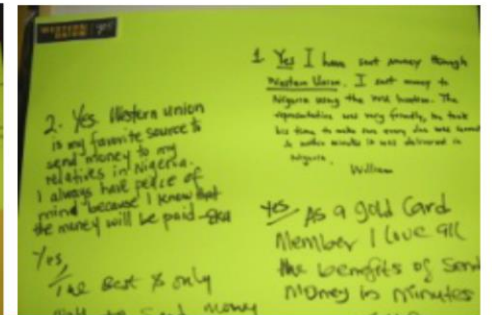 WESTERN UNION
2. Yes. Western union
is my favorite source to
send money to my
relatives in Nigeria.
I always have peace of
mind because I know that
the money will be paid
Yes,
The Best & only
to Send money
1. Yes I have sent money through
Western Union. I sent money to
Nigeria using the west location. The
representative was very friendly, he took
his time to make sure every line was
& within minutes it was delivered in
Nigeria.
William
Yes, As a gold Card
Member I love all
the benefits of Send
money in minutes